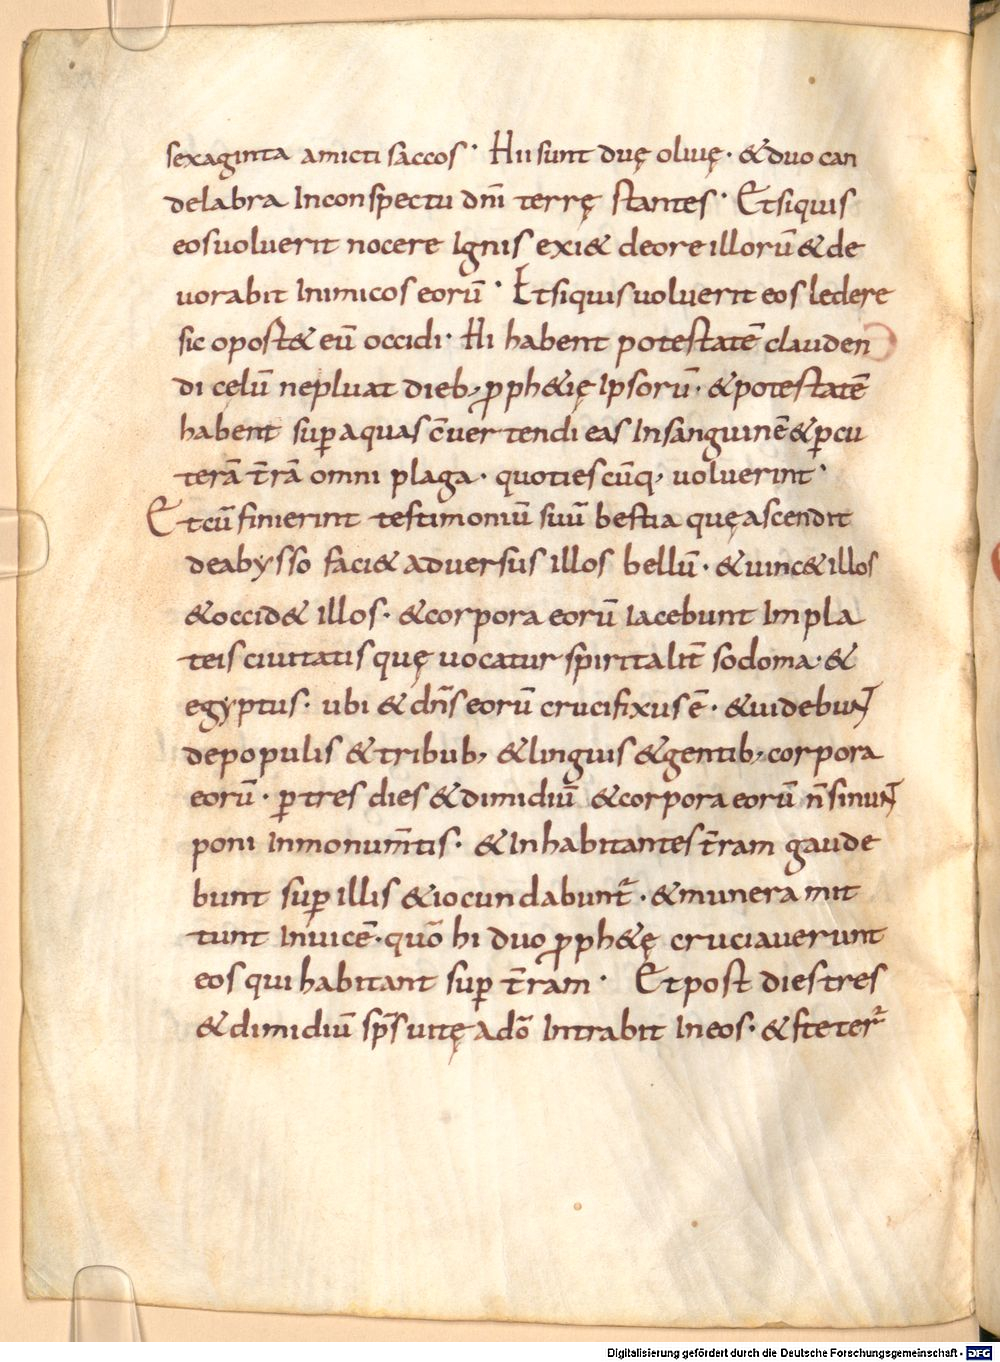 sexaginta amicti saccos · Hii sunt duę oliuę · & duo can
delabra Inconspectu dnī terrę stantes · Et siquis
eos uoluerit nocere Ignis exi& deore illorū & de
uorabit Inimicos eorū · Et siquis uoluerit eos ledere
sic oport& eū occidi · Hi habent potestatē clauden
di cęlū nepluat dieb; ꝓph&ię Ipsorū · & potestatē
habent suꝑ aquas c̄uertendi eas Insanguinē & ꝑcu
terā t̄rā omni plaga · quotiescūq; uoluerint ·
Et cū finierint testimoniū suū bestia quę ascendit
deabysso faci& aduersus illos bellū · & uinc& illos
& occid& illos · & corpora eorū Iacebunt Impla
teis ciuitatis quę uocatur spiritalit̄ sodoma · &
egyptus · ubi & dn̄s eorū crucifixus ē · & uidebunt
depopulis & tribub; & linguis & gentib; corpora
eorū · ꝑ tres dies & dimidiū & corpora eorū n̄ sinunt
poni Inmonum̄tis · & Inhabitantes t̄ram gaude
bunt suꝑ illis & iocundabunt᷑ · & munera mit
tunt Inuicē · quō hi duo ꝓph&ę cruciauerunt
eos qui habitant suꝑ t̄ram · Et post dies tres
& dimidiū sp̄s uitę adō Intrabit Ineos · & steter᷑
Digitalisierung gefördert durch die Deutsche Forschungsgemeinschaft - DFG